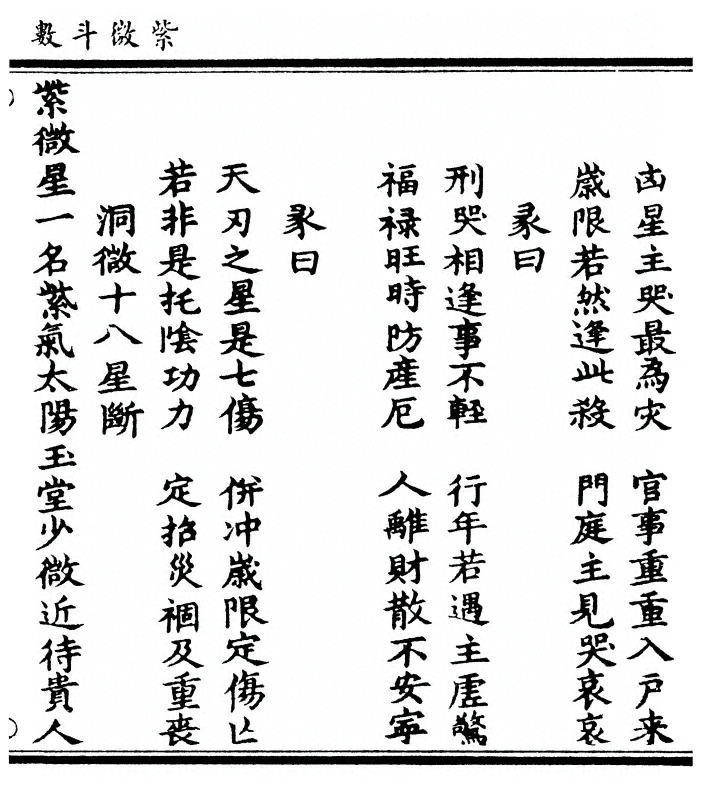 紫微斗數
凶星主哭最為灾　官事重重入戶来
歲限若然逢此殺　門庭主見哭哀哀
彖曰
刑哭相逢事不輕　行年若遇主虛驚
福禄旺時防產厄　人離財散不安寧
彖曰
天刃之星是七傷　併冲歲限定傷亡
若非是托陰功力　定招災禍及重喪
洞微十八星斷
紫微星一名紫氣太陽玉堂少微近待貴人